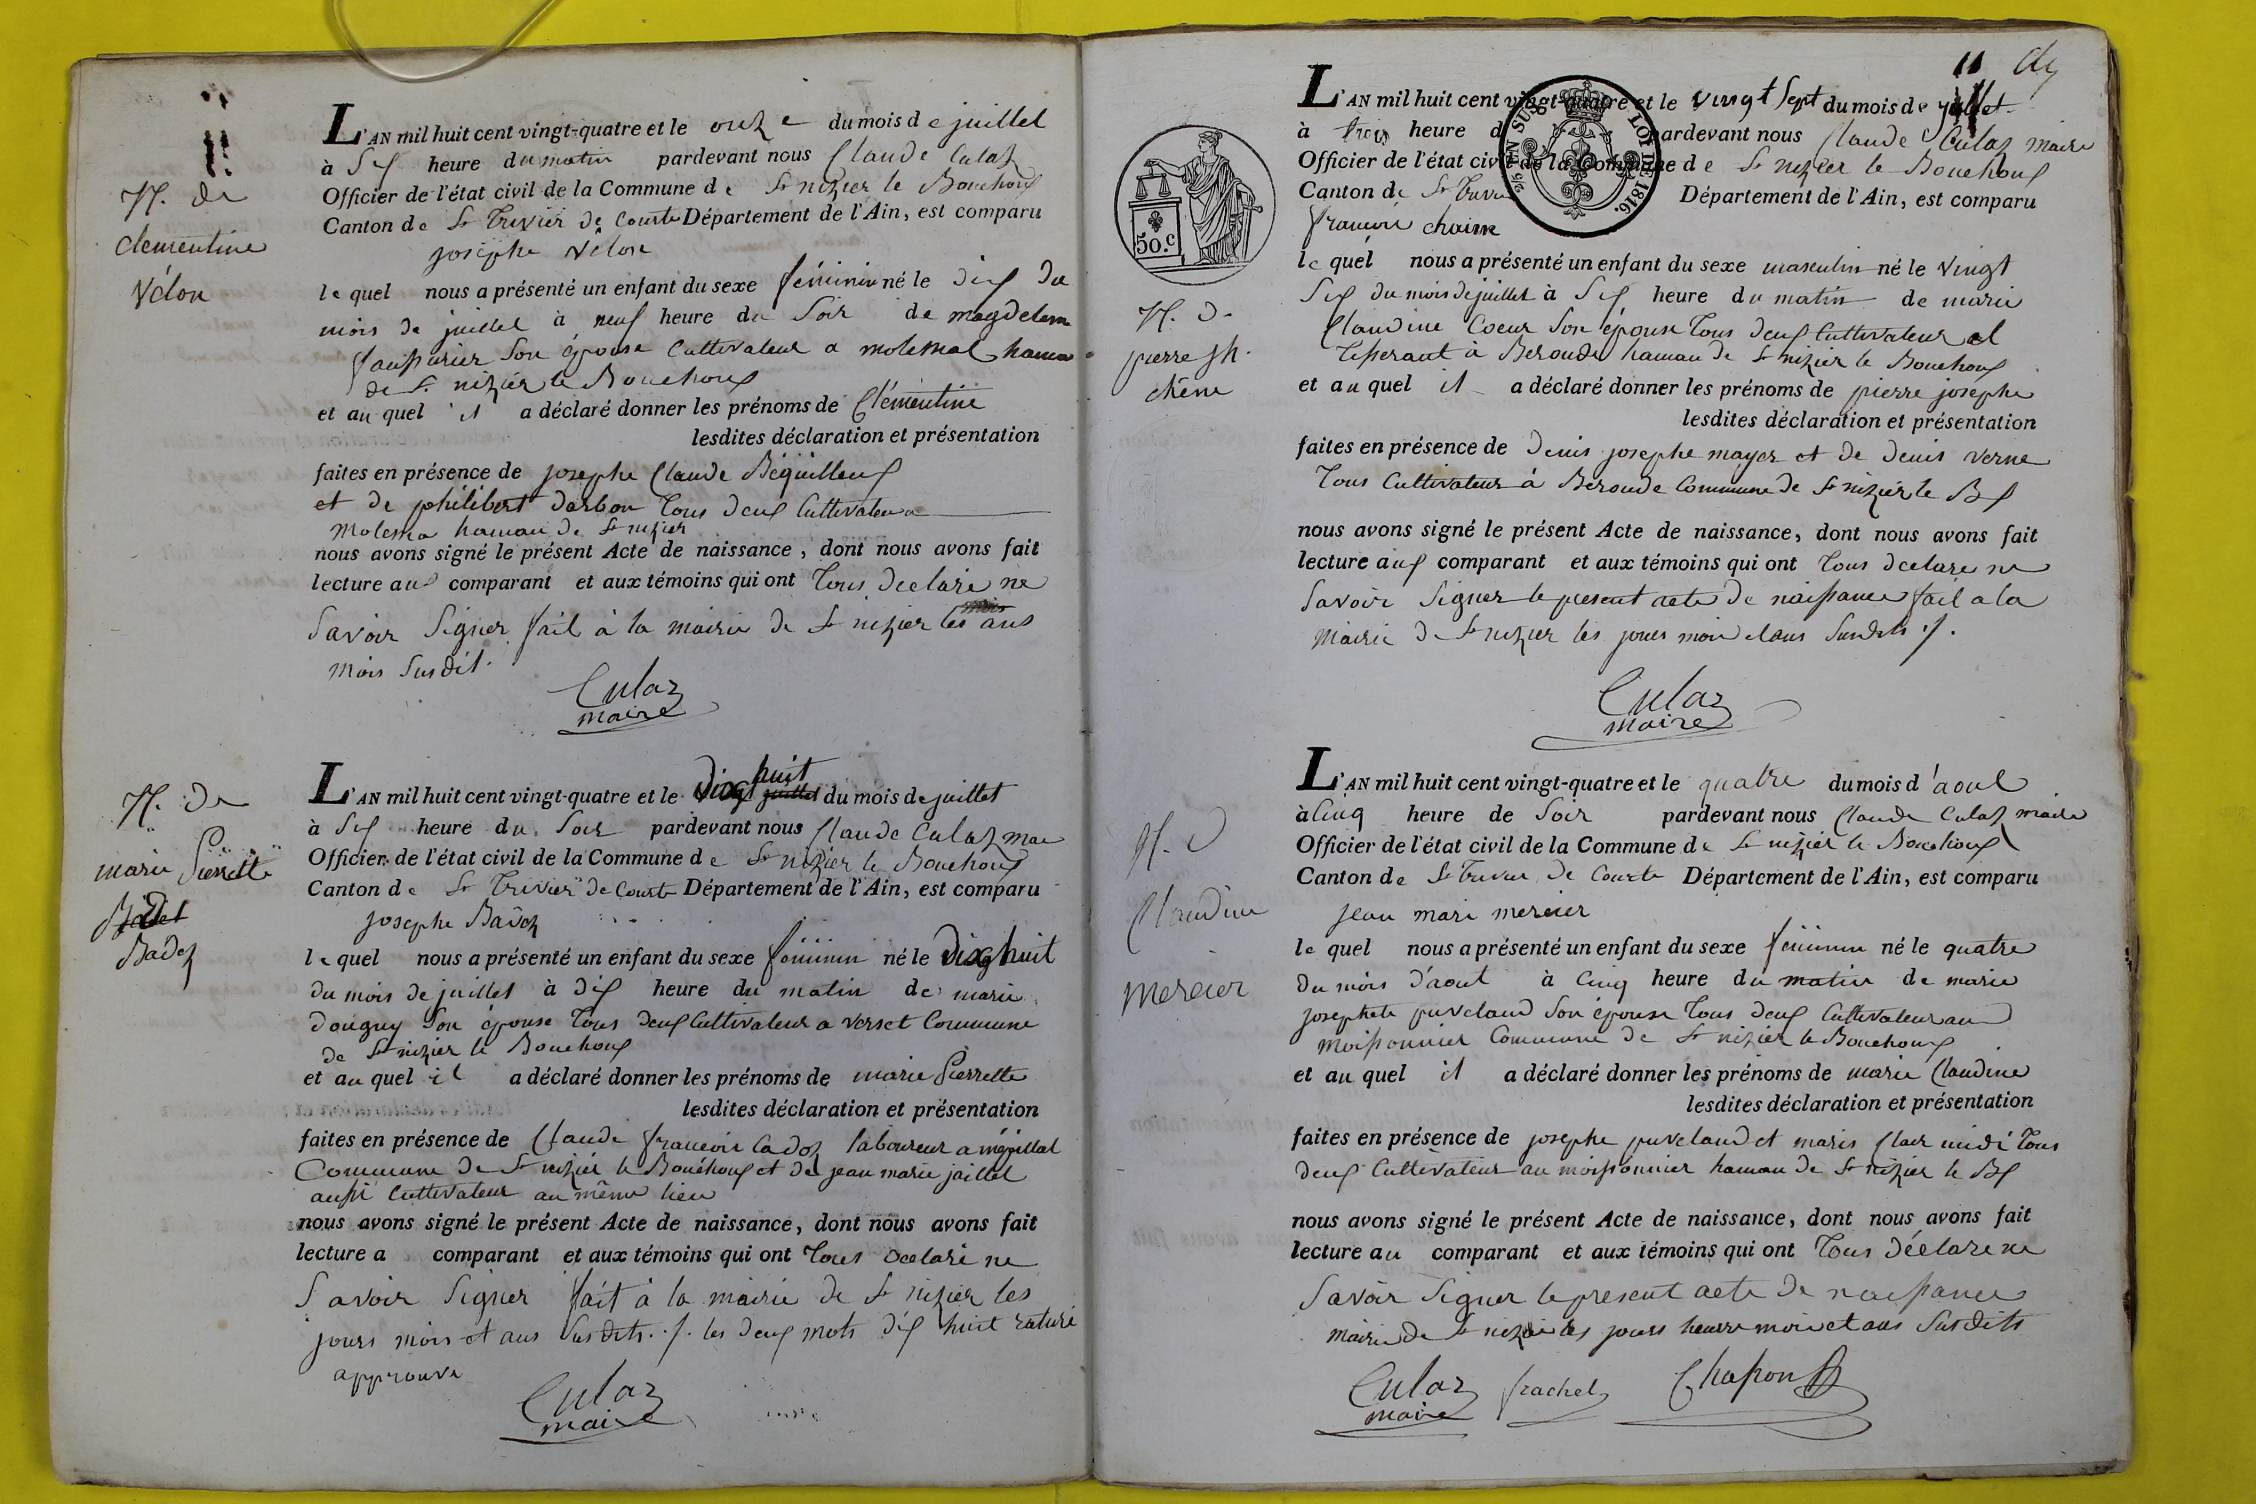 N. de
clementine
Vélon
L'AN mil huit cent vingt-quatre et le onze du mois de juillet
à Six heure du matin pardevant nous Claude Culaz
Officier de l'état civil de la Commune de St nizier le Bouchoux
Canton de St Trivier de Courte Département de l'Ain, est comparu
josephe Vélon
le quel nous a présenté un enfant du sexe féminin né le dix du
mois de juillet à neuf heure du Soir de magdelene
son épouse Cultivateur a molemal hamau
de St nizier le Bouchoux
et au quel il a déclaré donner les prénoms de Clémentine
lesdites déclaration et présentation
faites en présence de josephe Claude Béquilleux
et de philibert darbon Tous deux Cultivateur a
molema hamau de St nizier
nous avons signé le présent Acte de naissance, dont nous avons fait
lecture aux comparant et aux témoins qui ont Tous declaré ne
Savoir Signer fait à la mairie de St nizier les ans
mois Susdit.
Culaz
maire
N. de
marie Pierrette
Badet
Badoz
L'AN mil huit cent vingt-quatre et le Dix huit juillet du mois de juillet
à Six heure du Soir pardevant nous Claude Culaz mai
Officier de l'état civil de la Commune de St nizier le Bouchoux
Canton de St Trivier de Courte Département de l'Ain, est comparu
josephe Badoz
le quel nous a présenté un enfant du sexe féminin né le Dix huit
du mois de juillet à dix heure du matin de marie
douguy Son épouse Tous deux Cultivateur a verset Commune
de St nizier le Bouchoux
et au quel il a déclaré donner les prénoms de marie Pierrette
lesdites déclaration et présentation
faites en présence de Claude francois Cadoz laboureur a mépillat
Commune de St nizier le Bouchoux et de jean marie jaillet
aussi Cultivateur au même lieu
nous avons signé le présent Acte de naissance, dont nous avons fait
lecture a comparant et aux témoins qui ont Tous declaré ne
Savoir Signer fait à la mairie de St nizier les
jours mois et ans Susdits ./. les deux mots dix huit raturé
approuvé
Culaz
maire
11
50.c
2/5 EN SUS LOI DE 1816.
N. d.
pierre jh.
chêne
L'AN mil huit cent vingt-quatre et le vingt Sept du mois de juillet
à trois heure d pardevant nous Claude Culaz maire
Officier de l'état civil de la Commune de St nizier le Bouchoux
Canton de St Trivi Département de l'Ain, est comparu
francois chaine
le quel nous a présenté un enfant du sexe masculin né le vingt
Six du mois de juillet à Six heure du matin de marie
Claudine Coeur Son épouse Tous deux Cultivateur et
Tisserant à Beroude hamau de St nizier le Bouchoux
et au quel il a déclaré donner les prénoms de pierre josephe
lesdites déclaration et présentation
faites en présence de denis josephe mayer et de denis verne
Tous Cultivateur à Beroude Commune de St nizier le Bx
nous avons signé le présent Acte de naissance, dont nous avons fait
lecture aux comparant et aux témoins qui ont Tous declare ne
Savoir Signer le present acte de naissance fait a la
Mairie de St nizier les jours mois et ans Susdits ./.
Culaz
maire
N. D
Claudine
mercier
L'AN mil huit cent vingt-quatre et le quatre du mois d'aout
à Cinq heure de Soir pardevant nous Claude Culaz maire
Officier de l'état civil de la Commune de St nizier le Bouchoux
Canton de St Trivier de Courte Département de l'Ain, est comparu
jean mari mercier
le quel nous a présenté un enfant du sexe féminin né le quatre
du mois d'aout à Cinq heure du matin de marie
josephete puveland Son épouse Tous deux Cultivateur au
moissonnier Commune de St nizier le Bouchoux
et au quel il a déclaré donner les prénoms de marie Claudine
lesdites déclaration et présentation
faites en présence de josephe puveland et maris Clair midi Tous
deux Cultivateur au moissonnier hamau de St nizier le Bx
nous avons signé le présent Acte de naissance, dont nous avons fait
lecture au comparant et aux témoins qui ont Tous déclare ne
Savoir Signer le present acte de naissance
mairie de St nizier les jours heure mois et ans Susdits
Culaz frachet Chapon
maire